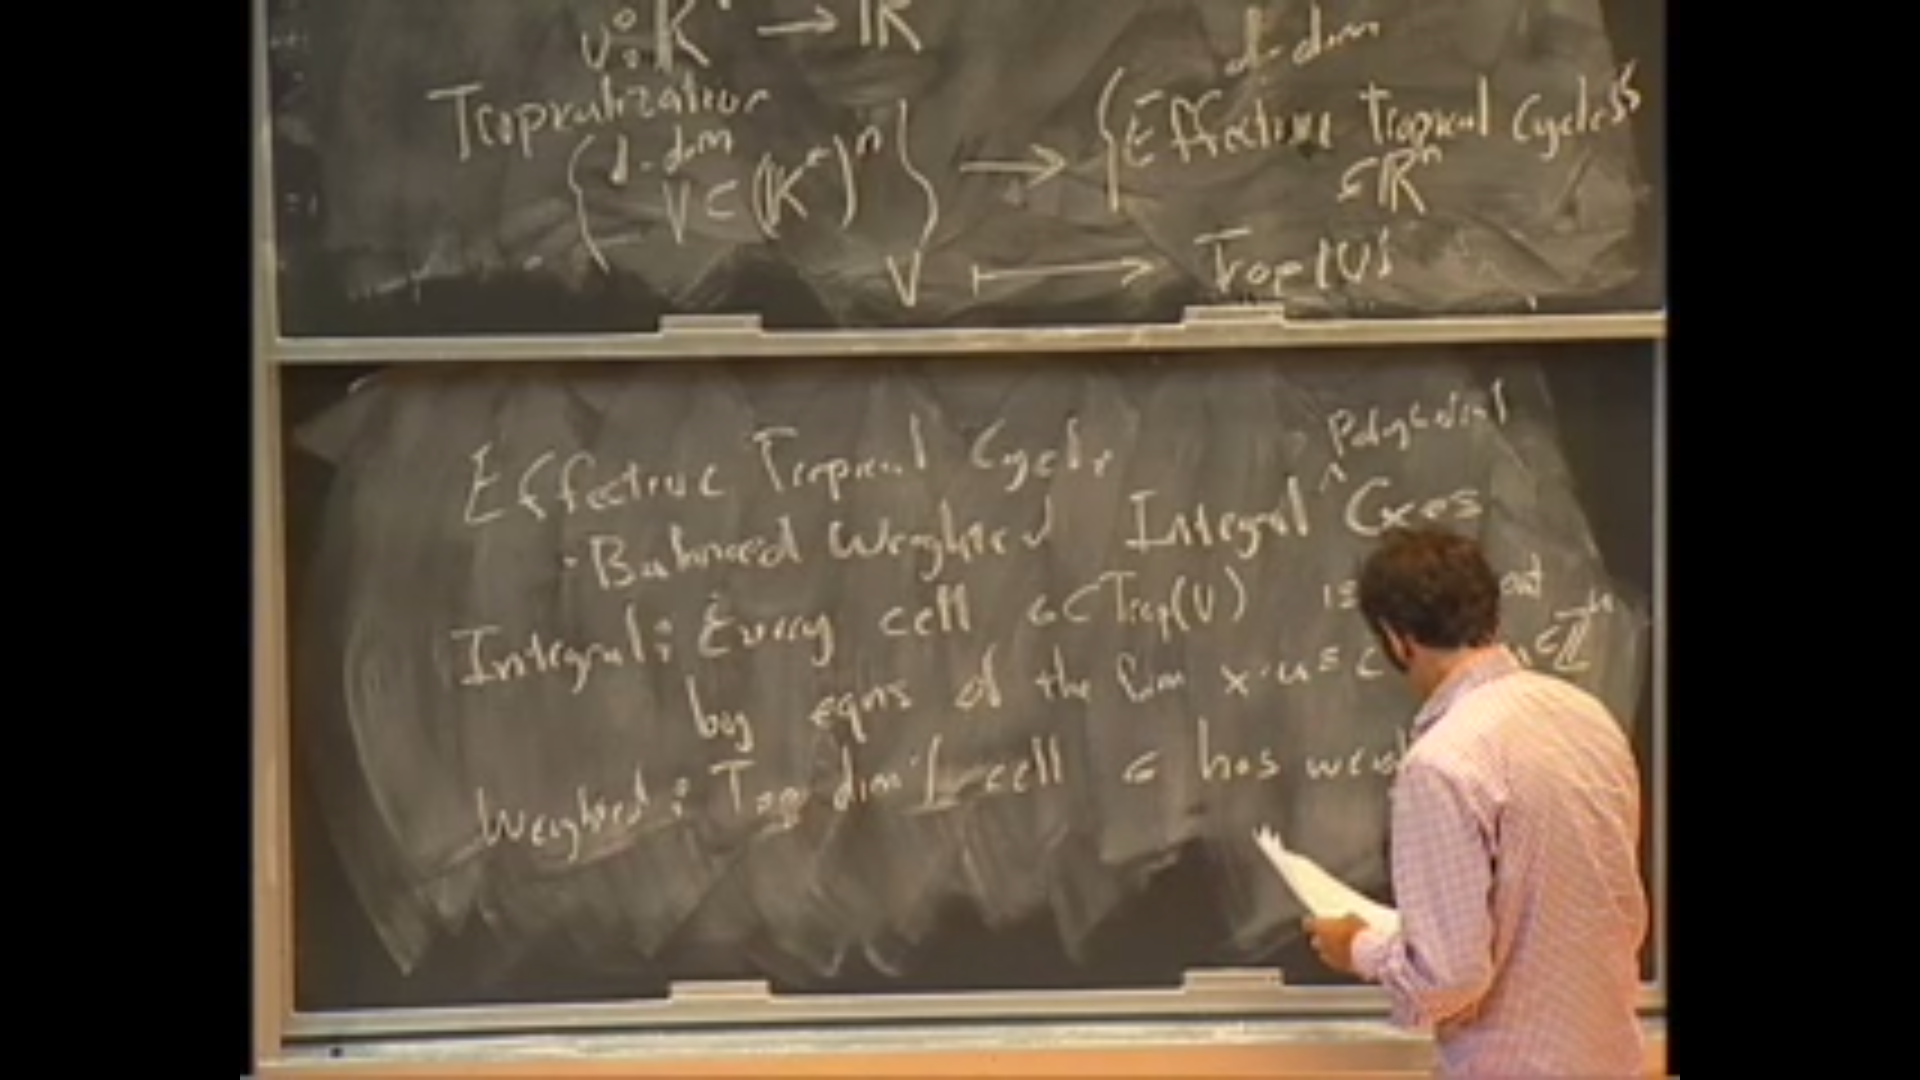 v: K* → ℝ
Tropicalization
d-dim
{ V ⊂ (K*)ⁿ } → { Effective Tropical Cycles }
d-dim
⊂ ℝⁿ
V ↦ Trop(V)
Effective Tropical Cycle
Polyhedral
· Balanced Weighted Integral ^ Cxes
Integral: Every cell σ ⊂ Trop(V) is
by eqns of the form x·u = c u ∈ ℤⁿ
Weighted: Top dim'l cell σ has